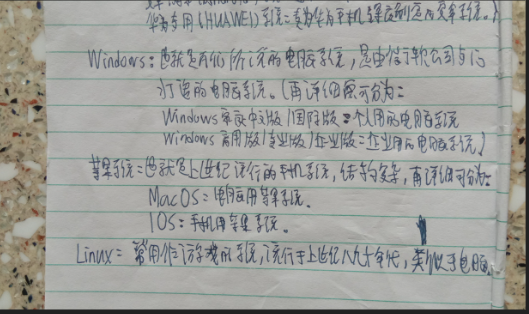 华为专用(HUAWEI)系统:专为华为手机
Windows:也就是我们所说的电脑系统,是由微软公司专门
打造的电脑系统。(再详细原可分为:
Windows 家庭中文版/国际版:个人用的电脑系统
Windows 商用版/专业版/企业版:企业用的电脑系统)
苹果系统:也就是上世纪流行的手机系统,结构复杂,再详细可分为:
MacOS:电脑用苹果系统。
IOS:手机用苹果系统。
Linux:常用作游戏机系统,流行于上世纪八九十年代,类似于电脑